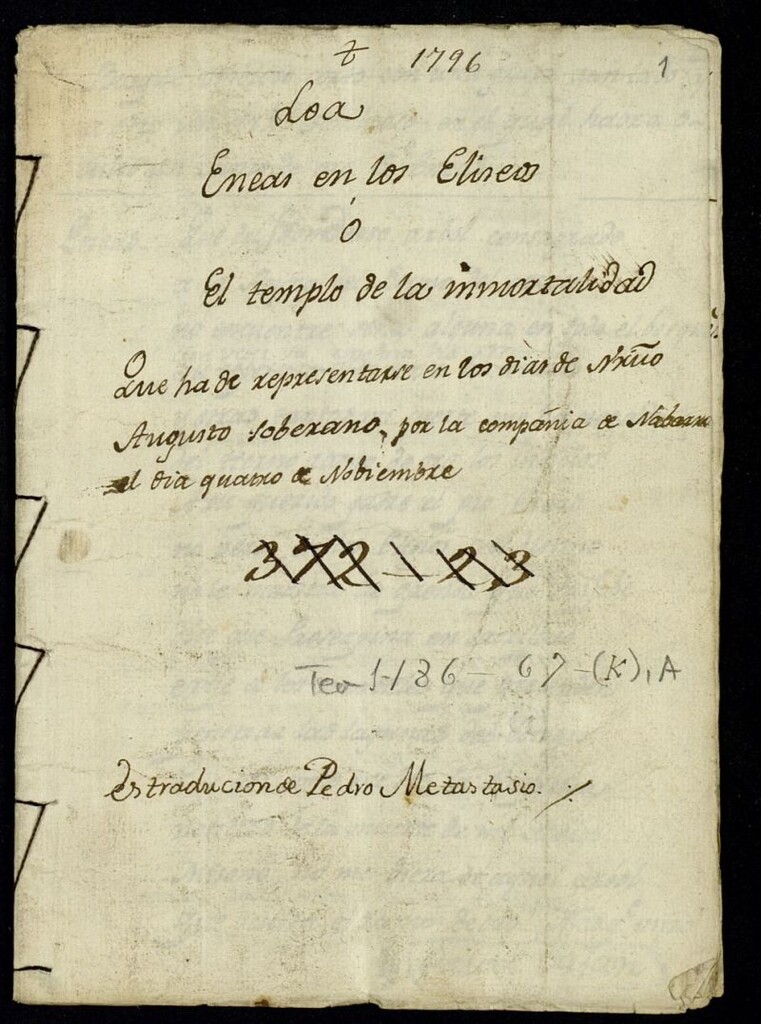 1796 1
Loa
Eneas en los Eliseos
ó
El templo de la inmortalidad
Que ha de representarse en los días de Nrũo
Augusto Soberano, por la compañia de Nabarro
el dia quatro de Nobiembre
372-23
Tea 1-186-67-(K), A
Es traducion de Pedro Metastasio.